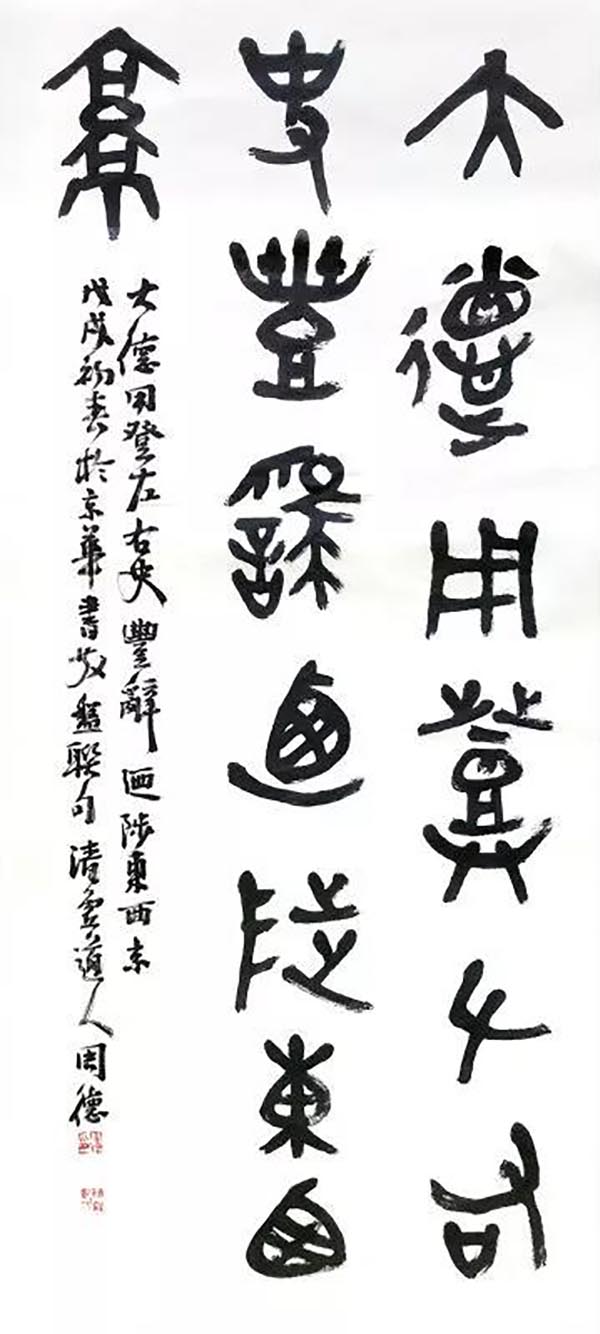 大德用登左右
史豐辭迺陟東西
京
大德用登左右史豐辭迺陟東西京
戊戌初春於京華書散盤聯句清虛道人周德